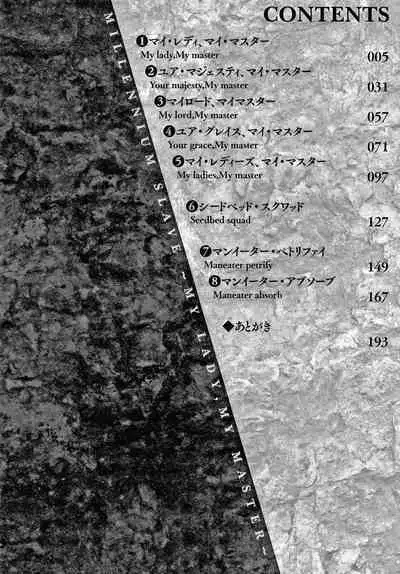 CONTENTS
❶マイ・レディ、マイ・マスター
My lady,My master
005
❷ユア・マジェスティ、マイ・マスター
Your majesty,My master
031
❸マイロード、マイマスター
My lord,My master
057
❹ユア・グレイス、マイ・マスター
Your grace,My master
071
❺マイ・レディーズ、マイ・マスター
My ladies,My master
097
❻シードベッド・スクワッド
Seedbed squad
127
❼マンイーター・ペトリファイ
Maneater petrify
149
❽マンイーター・アブソーブ
Maneater absorb
167
◆あとがき
193
MILLENNIUM SLAVE ~MY LADY,MY MASTER~